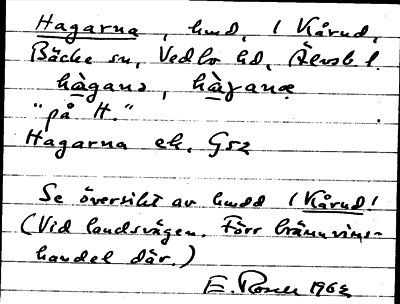 Hagarna, hmd, / Kårud,
Bäcke sn, Vedbo hd, Älvsb l.
hàgana, hàγanæ
"på H."
Hagarna ek. G52
Se översikt av hmdd / Kårud!
(Vid landsvägen. Förr brännvins-
handel där.)
E. Rosell 1962